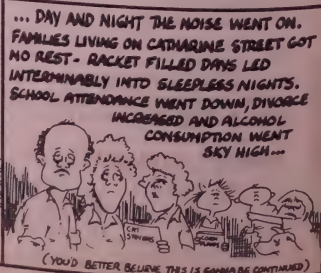 ... DAY AND NIGHT THE NOISE WENT ON.
FAMILIES LIVING ON CATHARINE STREET GOT
NO REST - RACKET FILLED DAYS LED
INTERMINABLY INTO SLEEPLESS NIGHTS.
SCHOOL ATTENDANCE WENT DOWN, DIVORCE
INCREASED AND ALCOHOL
CONSUMPTION WENT
SKY HIGH...
(YOU'D BETTER BELIEVE THIS IS GONNA BE CONTINUED)